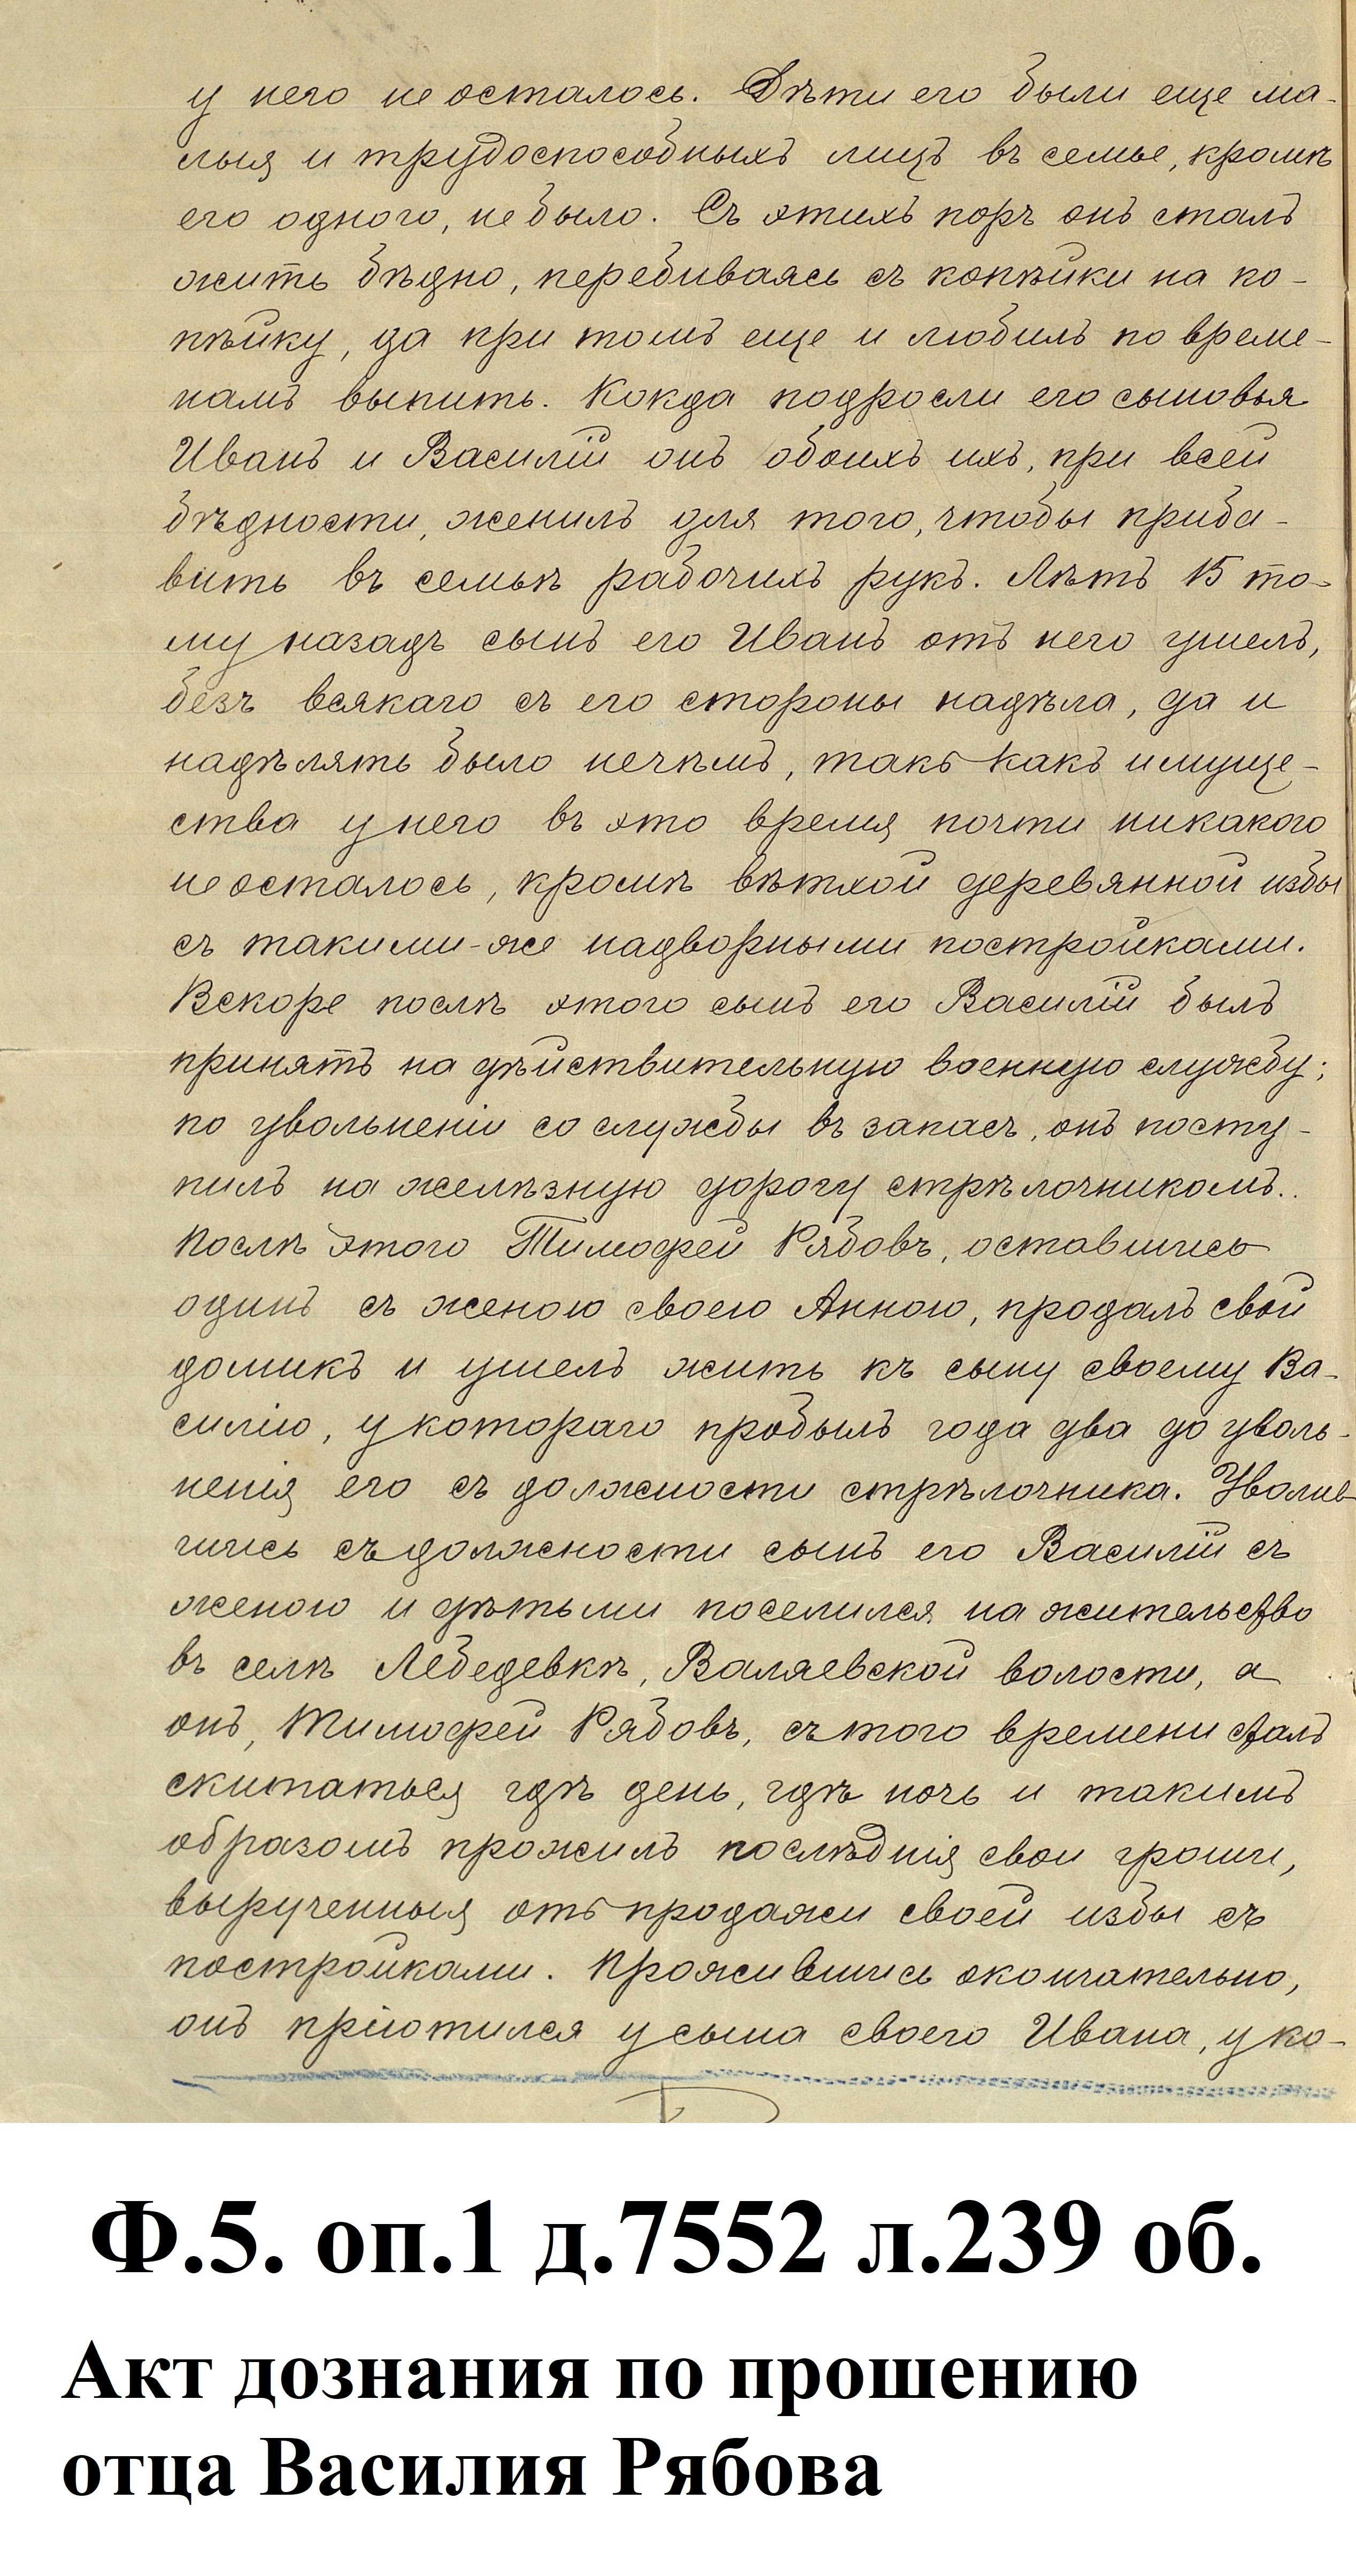 у него не осталось. Дѣти его были еще ма-
лыя и трудоспособныхъ лицъ въ семье, кромѣ
его одного, не было. Съ этихъ поръ онъ сталъ
жить бѣдно, перебиваясь съ копѣйки на ко-
пѣйку, да при томъ еще и любилъ по време-
намъ выпить. Кокда подросли его сыновья
Иванъ и Василій онъ обоихъ ихъ, при всей
бѣдности, женилъ для того, чтобы приба-
вить въ семьѣ рабочихъ рукъ. Лѣтъ 15 то-
му назадъ сынъ его Иванъ отъ него ушелъ,
безъ всякаго съ его стороны надѣла, да и
надѣлять было нечѣмъ, такъ какъ имуще-
ства у него въ это время почти никакого
не осталось, кромѣ вѣтхой деревянной избы
съ такими-же надворными постройками.
Вскоре послѣ этого сынъ его Василій былъ
принятъ на дѣйствительную военную службу;
по увольненіи со службы въ запасъ, онъ посту-
пилъ на желѣзную дорогу стрѣлочникомъ..
Послѣ этого Тимофей Рябовъ, оставшись
одинъ съ женою своею Анною, продалъ свой
домикъ и ушелъ жить къ сыну своему Ва-
силію, у котораго пробылъ года два до уволь-
ненія его съ должности стрѣлочника. Уволив-
шись съ должности сынъ его Василій съ
женою и дѣтьми поселился на жительство
въ селѣ Лебедевкѣ, Валяевской волости, а
онъ, Тимофей Рябовъ, съ того времени сталъ
скитаться гдѣ день, гдѣ ночь и такимъ
образомъ прожилъ послѣднія свои гроши,
вырученныя отъ продажи своей избы съ
постройками. Прожившись окончательно,
онъ пріютился у сына своего Ивана, у ко-
Ф.5. оп.1 д.7552 л.239 об.
Акт дознания по прошению
отца Василия Рябова